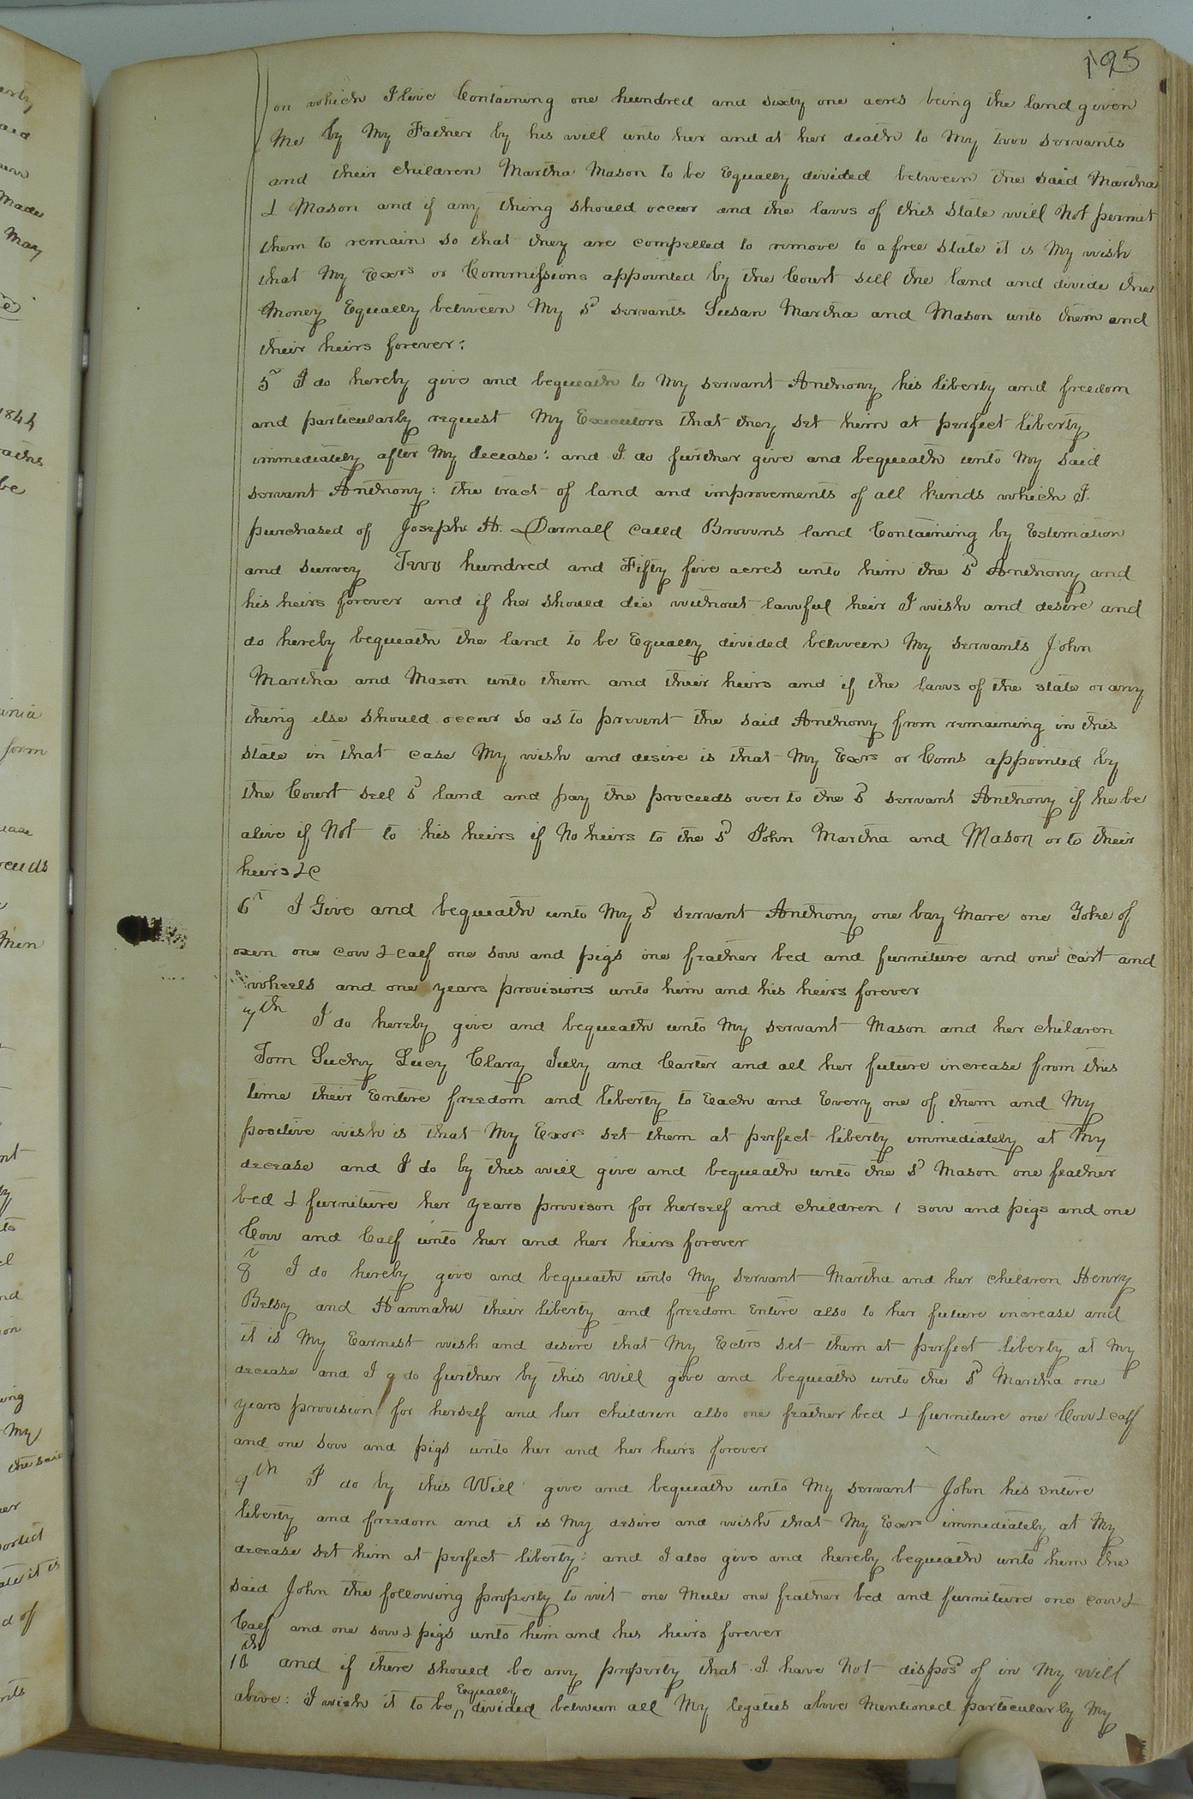 195
on which I live Containing one hundred and sixty one acres being the land given
Me by My Father by his will unto her and at her death to My two servants
and their children Martha Mason to be Equally divided between the said Martha
& Mason and if any thing should occur and the laws of this state will Not permit
them to remain so that they are compelled to remove to a free state it is My wish
that My Exors or Commissions appointed by the Court sell the land and divide the
Money Equally between My sd servants Susan Martha and Mason unto them and
their heirs forever:
5th I do hereby give and bequeath to My servant Anthony his liberty and freedom
and particularly request My Executors that they set him at perfect liberty
immediately after My decease: and I do further give and bequeath unto My said
servant Anthony: the tract of land and improvements of all kinds which I
purchased of Joseph H. Darnall called Browns land Containing by Estimation
and survey Two hundred and Fifty five acres unto him the sd Anthony and
his heirs forever and if he should die without lawful heir I wish and desire and
do hereby bequeath the land to be Equally divided between My servants John
Martha and Mason unto them and their heirs and if the laws of the state or any
thing else should occur so as to prevent the said Anthony from remaining in this
state in that case My wish and desire is that My Exors or Coms appointed by
the Court sell sd land and pay the proceeds over to the sd servant Anthony if he be
alive if Not to his heirs if No heirs to the sd John Martha and Mason or to their
heirs &c
6th I Give and bequeath unto My sd servant Anthony one bay Mare one Yoke of
oxen one cow & calf one sow and pigs one feather bed and furniture and one cart and
wheels and one years provisions unto him and his heirs forever
7th I do hereby give and bequeath unto My servant Mason and her children
Tom Lucy Clary July and Carter and all her future increase from this
time their Entire freedom and liberty to Each and Every one of them and My
positive wish is that My Exors set them at perfect liberty immediately at My
decease and I do by this will give and bequeath unto the sd Mason one feather
bed & furniture her years provison for herself and children 1 sow and pigs and one
Cow and Calf unto her and her heirs forever
8th I do hereby give and bequeath unto My servant Martha and her children Henry
Betsy and Hannah their liberty and freedom Entire also to her future increase and
it is My Earnest wish and desire that My Extrs set them at perfect liberty at My
decease and I do further by this Will give and bequeath unto the sd Martha one
years provision for herself and her children also one feather bed & furniture one Cow & calf
and one sow and pigs unto her and her heirs forever
9th I do by this Will give and bequeath unto My servant John his Entire
liberty and freedom and it is My desire and wish that My Exors immediately at My
decease set him at perfect liberty: and I also give and hereby bequeath unto him the
said John the following property to wit one Mule one feather bed and furniture one cow &
Calf and one sow & pigs unto him and his heirs forever
10th and if there should be any property that I have Not disposd of in My Will
above: I wish it to be Equally divided between all My legatus above Mentioned particularly My